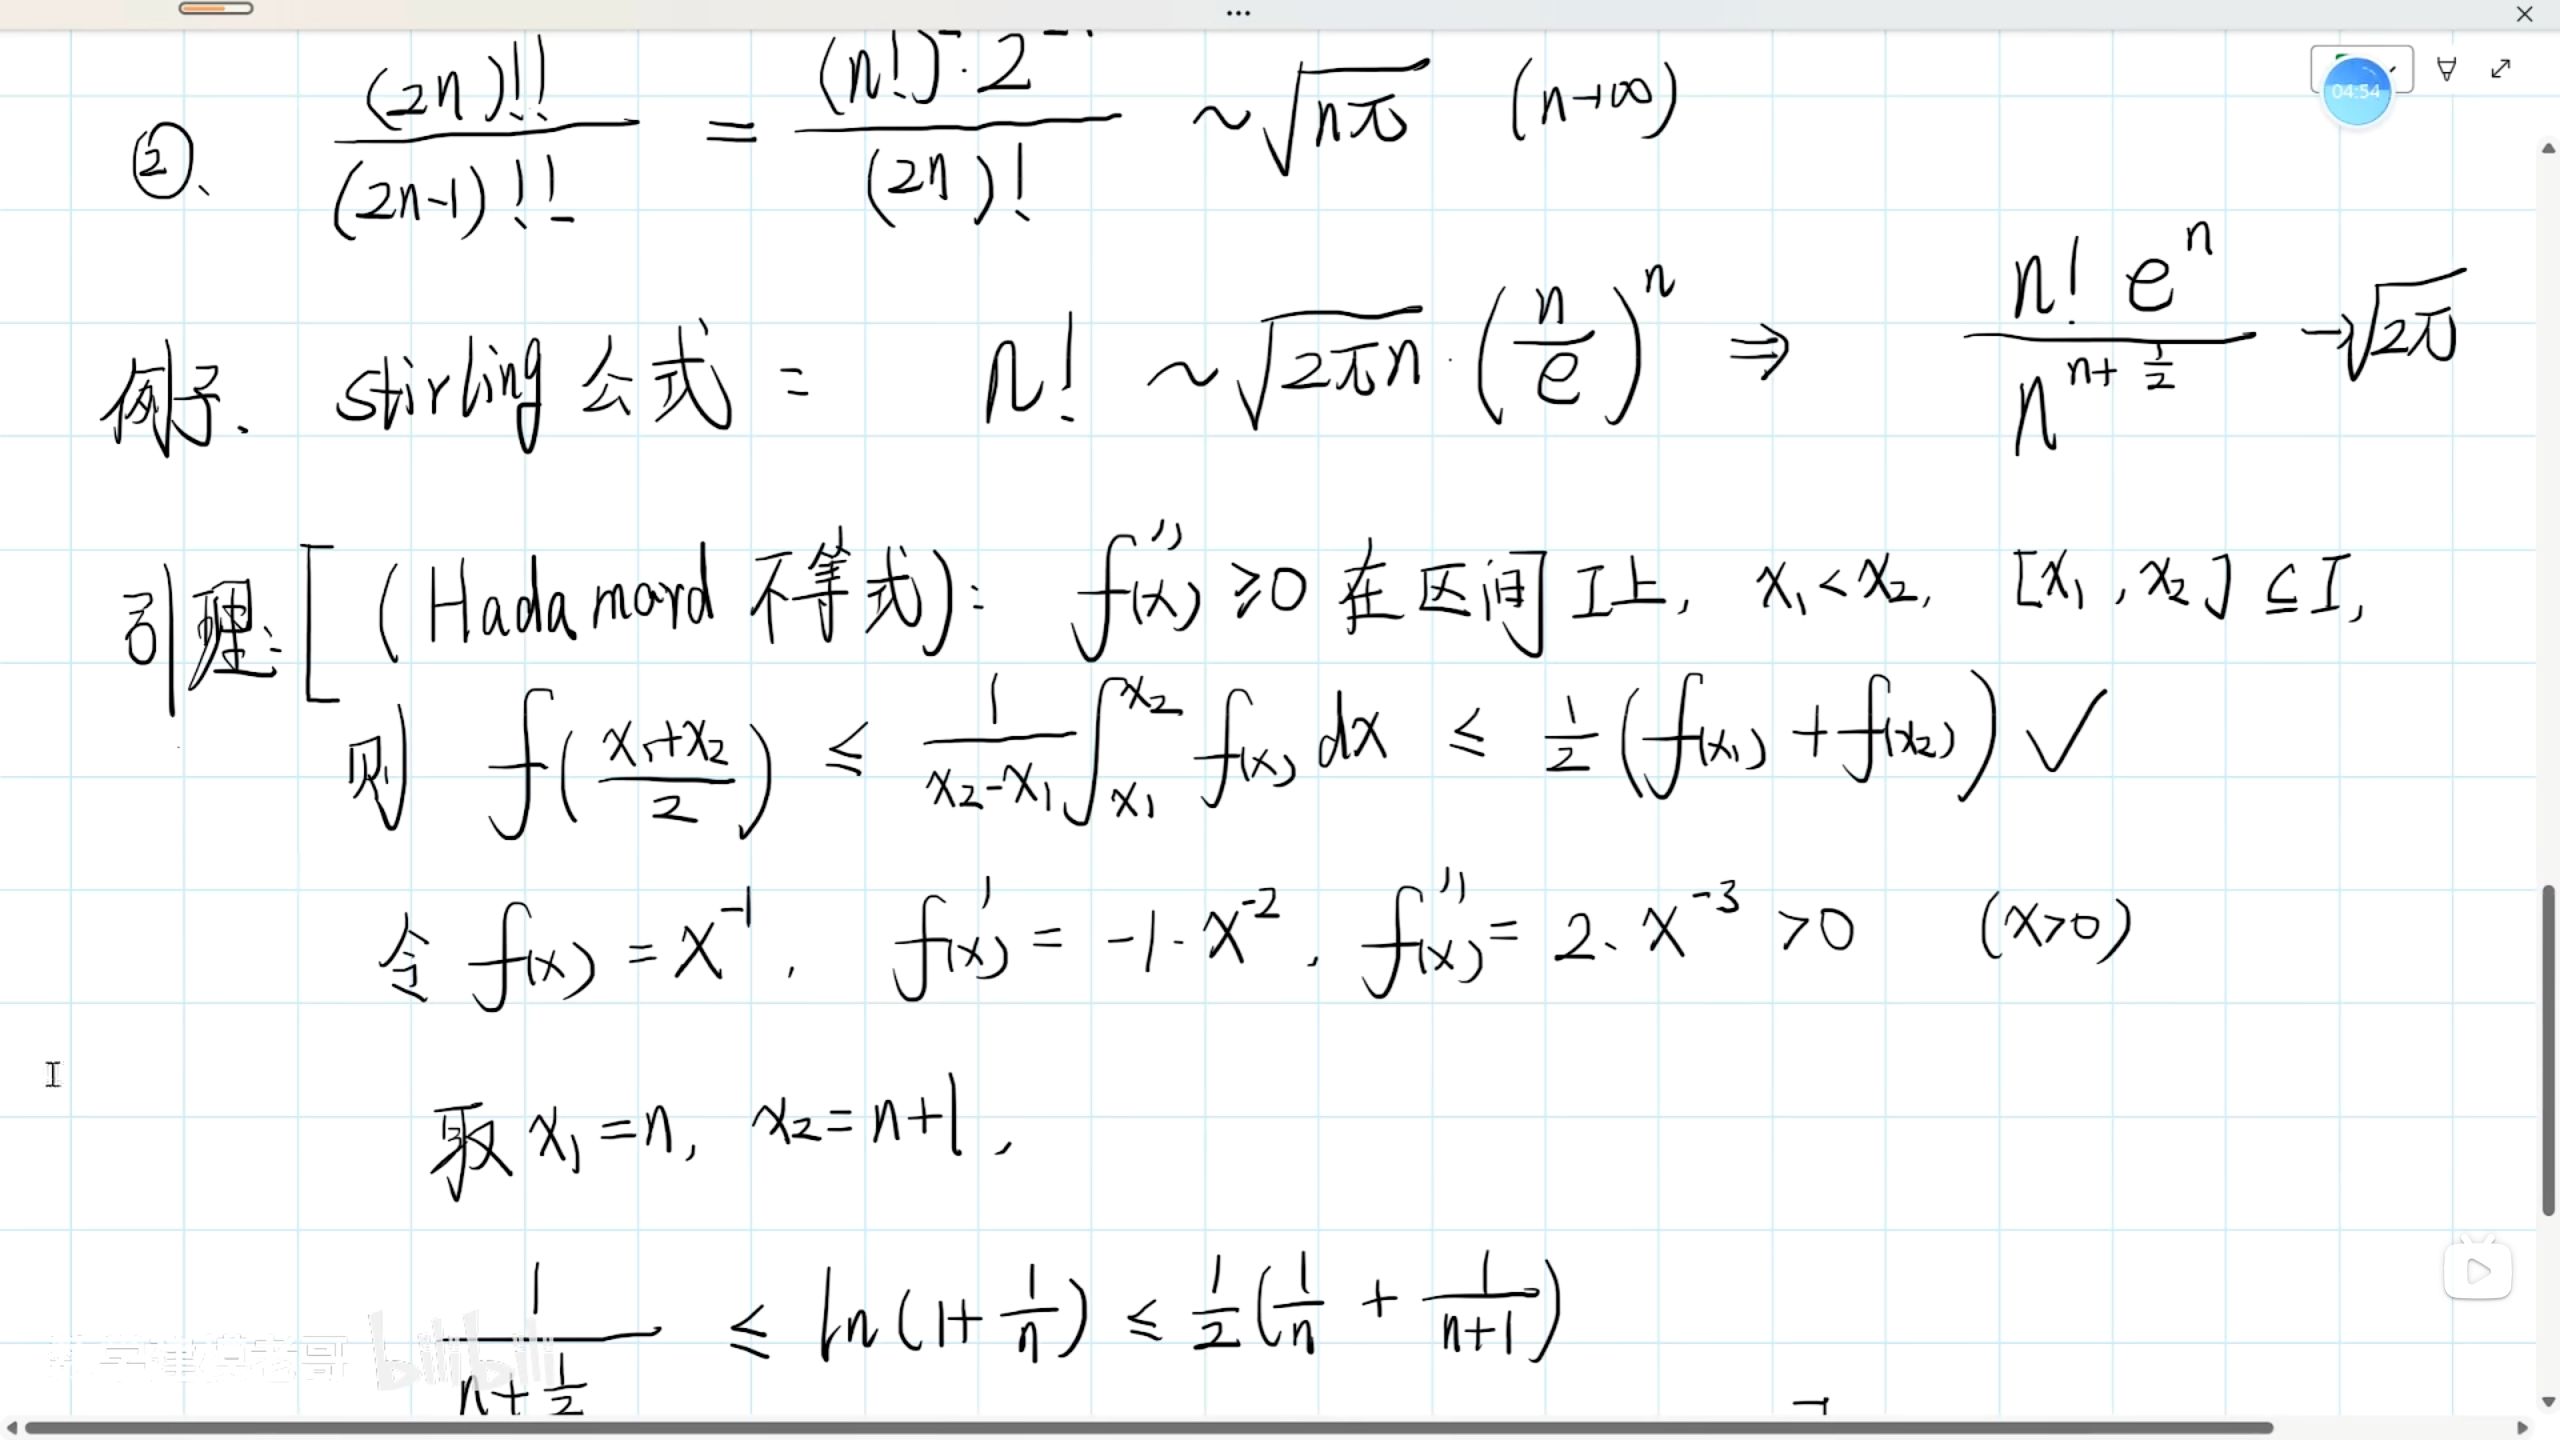 04:54
②、 (2n)!!/(2n-1)!! = (n!)·2/(2n)! ~ √(nπ) (n→∞)
例子. stirling 公式 = n! ~ √(2πn) · (n/e)^n ⇒ n! e^n / n^(n+1/2) → √(2π)
引理: [ (Hadamard 不等式): f''(x) ≥ 0 在区间 I上, x₁<x₂, [x₁, x₂] ⊆ I,
则 f((x₁+x₂)/2) ≤ 1/(x₂-x₁) ∫_{x₁}^{x₂} f(x) dx ≤ 1/2 (f(x₁) + f(x₂)) ✓
令 f(x) = x^-1, f'(x) = -1·x^-2, f''(x) = 2·x^-3 >0 (x>0)
取 x₁=n, x₂=n+1,
1/(n+1/2) ≤ ln(1+1/n) ≤ 1/2(1/n + 1/(n+1))
bilibili